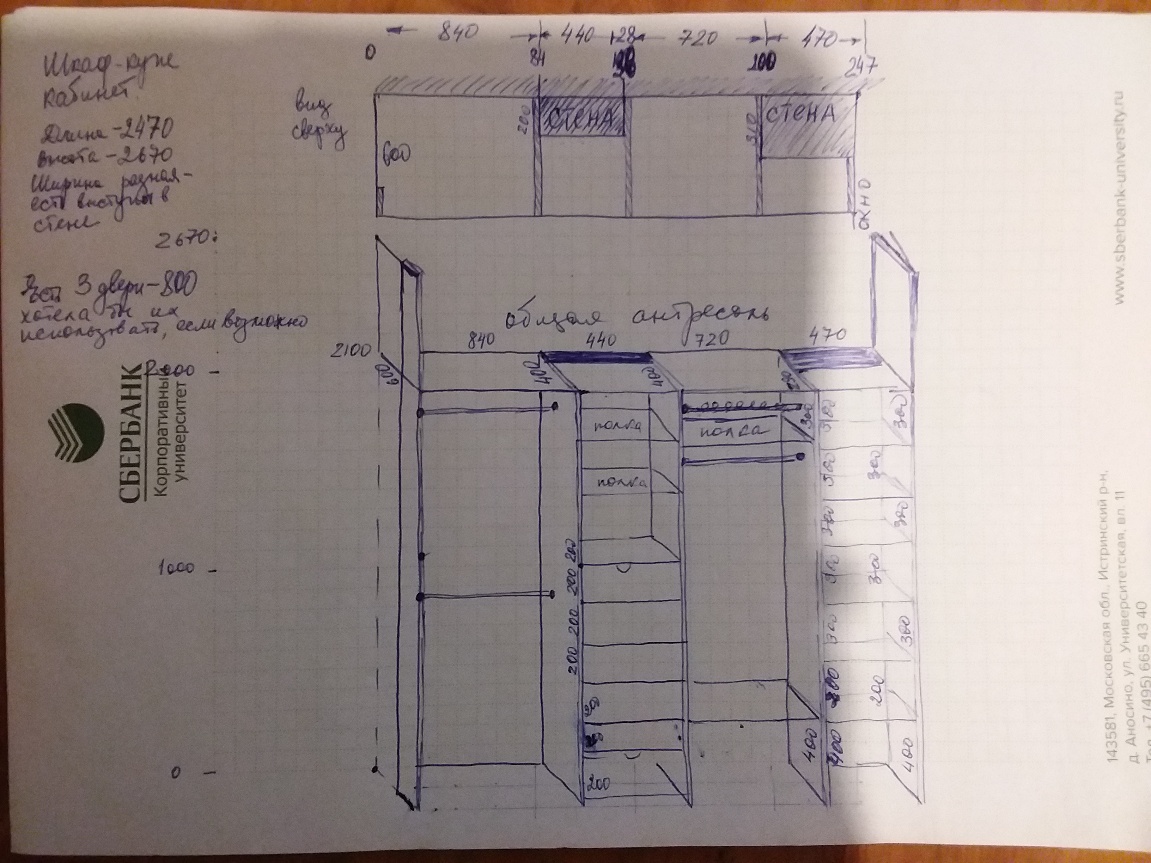 Шкаф-купе
кабинет
Длина-2470
высота-2670
Ширина разная-
есть выступы в
стене
2670
Есть 3 двери-800
хотела бы их
использовать, если возможно
вид
сверху
840 440 28 720 470
0 84 247
600 200 СТЕНА 310 СТЕНА
ОКНО
общая антресоль
840 440 720 470
2100
2000
1000
0
600 400 400
полка
полка
полка
300 300
300 300
300
300 300
300 300
200 200
200 200
200
200
400 400 400
СБЕРБАНК
Корпоративный
университет
www.sberbank-university.ru
143581, Московская обл., Истринский р-н,
д. Аносино, ул. Университетская, вл. 11
Тел. +7 (495) 665 43 40